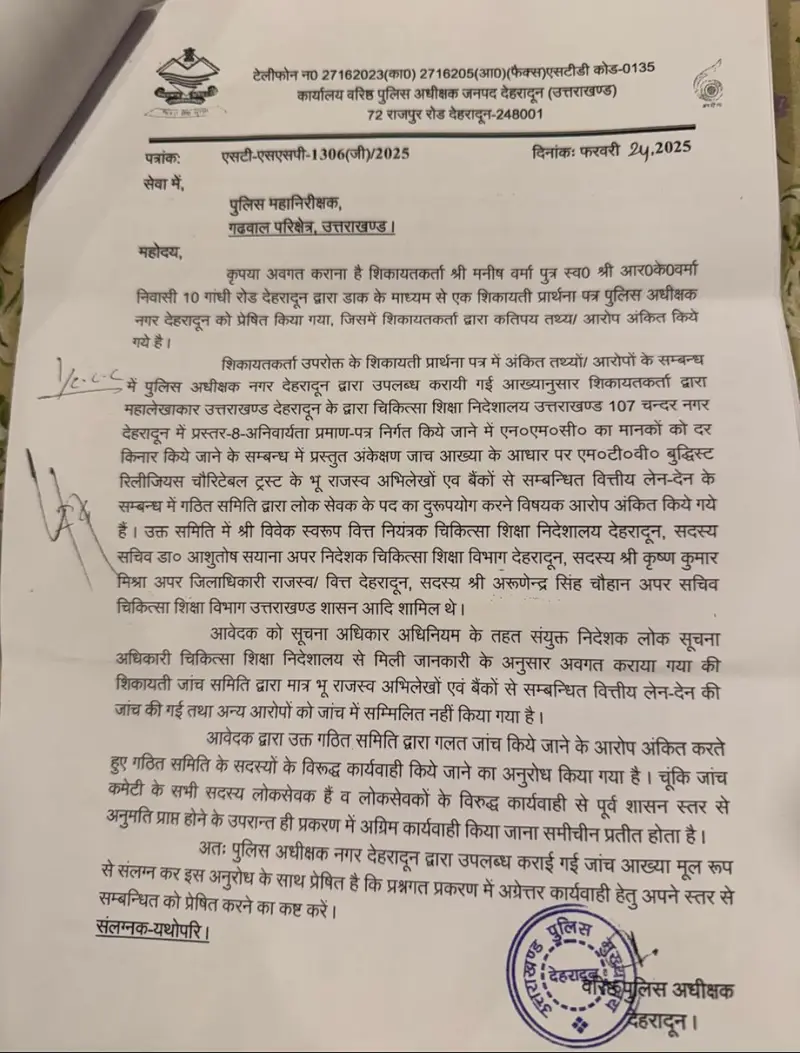 टेलीफोन न0 27162023(का0) 2716205(आ0)(फैक्स)एसटीडी कोड-0135
कार्यालय वरिष्ठ पुलिस अधीक्षक जनपद देहरादून (उत्तराखण्ड)
72 राजपुर रोड देहरादून-248001
पत्रांकः एसटी-एसएसपी-1306(जी)/2025 दिनांकः फरवरी 24,2025
सेवा में,
पुलिस महानिरीक्षक,
गढवाल परिक्षेत्र, उत्तराखण्ड।
महोदय,
कृपया अवगत कराना है शिकायतकर्ता श्री मनीष वर्मा पुत्र स्व0 श्री आर0के0वर्मा
निवासी 10 गांधी रोड देहरादून द्वारा डाक के माध्यम से एक शिकायती प्रार्थना पत्र पुलिस अधीक्षक
नगर देहरादून को प्रेषित किया गया, जिसमें शिकायतकर्ता द्वारा कतिपय तथ्य/ आरोप अंकित किये
गये है।
शिकायतकर्ता उपरोक्त के शिकायती प्रार्थना पत्र में अंकित तथ्यों/ आरोपों के सम्बन्ध
में पुलिस अधीक्षक नगर देहरादून द्वारा उपलब्ध करायी गई आख्यानुसार शिकायतकर्ता द्वारा
महालेखाकार उत्तराखण्ड देहरादून के द्वारा चिकित्सा शिक्षा निदेशालय उत्तराखण्ड 107 चन्दर नगर
देहरादून में प्रस्तर-8-अनिवार्यता प्रमाण-पत्र निर्गत किये जाने में एन०एम०सी० का मानकों को दर
किनार किये जाने के सम्बन्ध में प्रस्तुत अंकेक्षण जाच आख्या के आधार पर एम०टी०वी० बुद्धिस्ट
रिलीजियस चौरिटेबल ट्रस्ट के भू राजस्व अभिलेखों एवं बैंकों से सम्बन्धित वित्तीय लेन-देन के
सम्बन्ध में गठित समिति द्वारा लोक सेवक के पद का दुरूपयोग करने विषयक आरोप अंकित किये गये
हैं। उक्त समिति में श्री विवेक स्वरूप वित्त नियंत्रक चिकित्सा शिक्षा निदेशालय देहरादून, सदस्य
सचिव डा० आशुतोष सयाना अपर निदेशक चिकित्सा शिक्षा विभाग देहरादून, सदस्य श्री कृष्ण कुमार
मिश्रा अपर जिलाधिकारी राजस्व/ वित्त देहरादून, सदस्य श्री अरूणेन्द्र सिंह चौहान अपर सचिव
चिकित्सा शिक्षा विभाग उत्तराखण्ड शासन आदि शामिल थे।
आवेदक को सूचना अधिकार अधिनियम के तहत संयुक्त निदेशक लोक सूचना
अधिकारी चिकित्सा शिक्षा निदेशालय से मिली जानकारी के अनुसार अवगत कराया गया की
शिकायती जांच समिति द्वारा मात्र भू राजस्व अभिलेखों एवं बैंकों से सम्बन्धित वित्तीय लेन-देन की
जांच की गई तथा अन्य आरोपों को जांच में सम्मिलित नहीं किया गया है।
आवेदक द्वारा उक्त गठित समिति द्वारा गलत जांच किये जाने के आरोप अंकित करते
हुए गठित समिति के सदस्यों के विरूद्ध कार्यवाही किये जाने का अनुरोध किया गया है। चूंकि जांच
कमेटी के सभी सदस्य लोकसेवक हैं व लोकसेवकों के विरुद्ध कार्यवाही से पूर्व शासन स्तर से
अनुमति प्राप्त होने के उपरान्त ही प्रकरण में अग्रिम कार्यवाही किया जाना समीचीन प्रतीत होता है।
अतः पुलिस अधीक्षक नगर देहरादून द्वारा उपलब्ध कराई गई जांच आख्या मूल रूप
से संलग्न कर इस अनुरोध के साथ प्रेषित है कि प्रश्नगत प्रकरण में अग्रेत्तर कार्यवाही हेतु अपने स्तर से
सम्बन्धित को प्रेषित करने का कष्ट करें।
संलग्नक-यथोपरि।
उत्तराखण्ड पुलिस
देहरादून
वरिष्ठ पुलिस अधीक्षक
देहरादून।